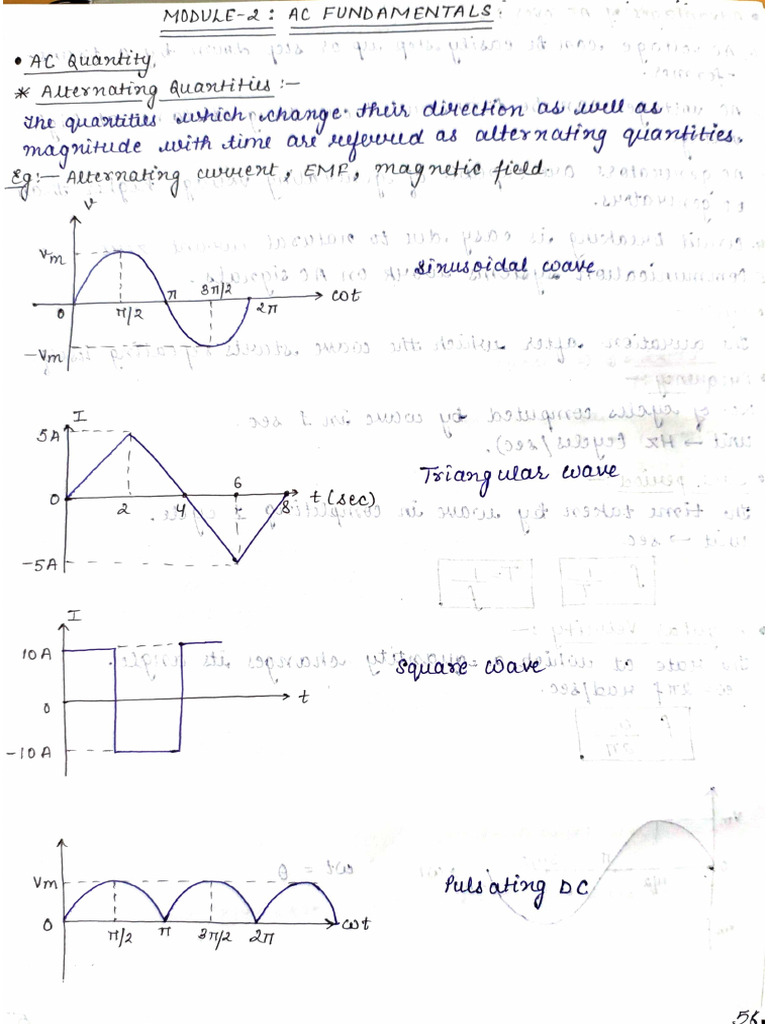 MODULE-2 : AC FUNDAMENTALS :
• AC Quantity.
* Alternating Quantities :-
The quantities which change their direction as well as
magnitude with time are referred as alternating quantities.
Eg:- Alternating current, EMF, magnetic field.
V
Vm
0
π/2
π
3π/2
2π
ωt
-Vm
Sinusoidal wave
I
5A
0
2
4
6
8
t (sec)
-5A
Triangular wave
I
10A
0
t
-10A
Square wave
Vm
0
π/2
π
3π/2
2π
ωt
Pulsating DC